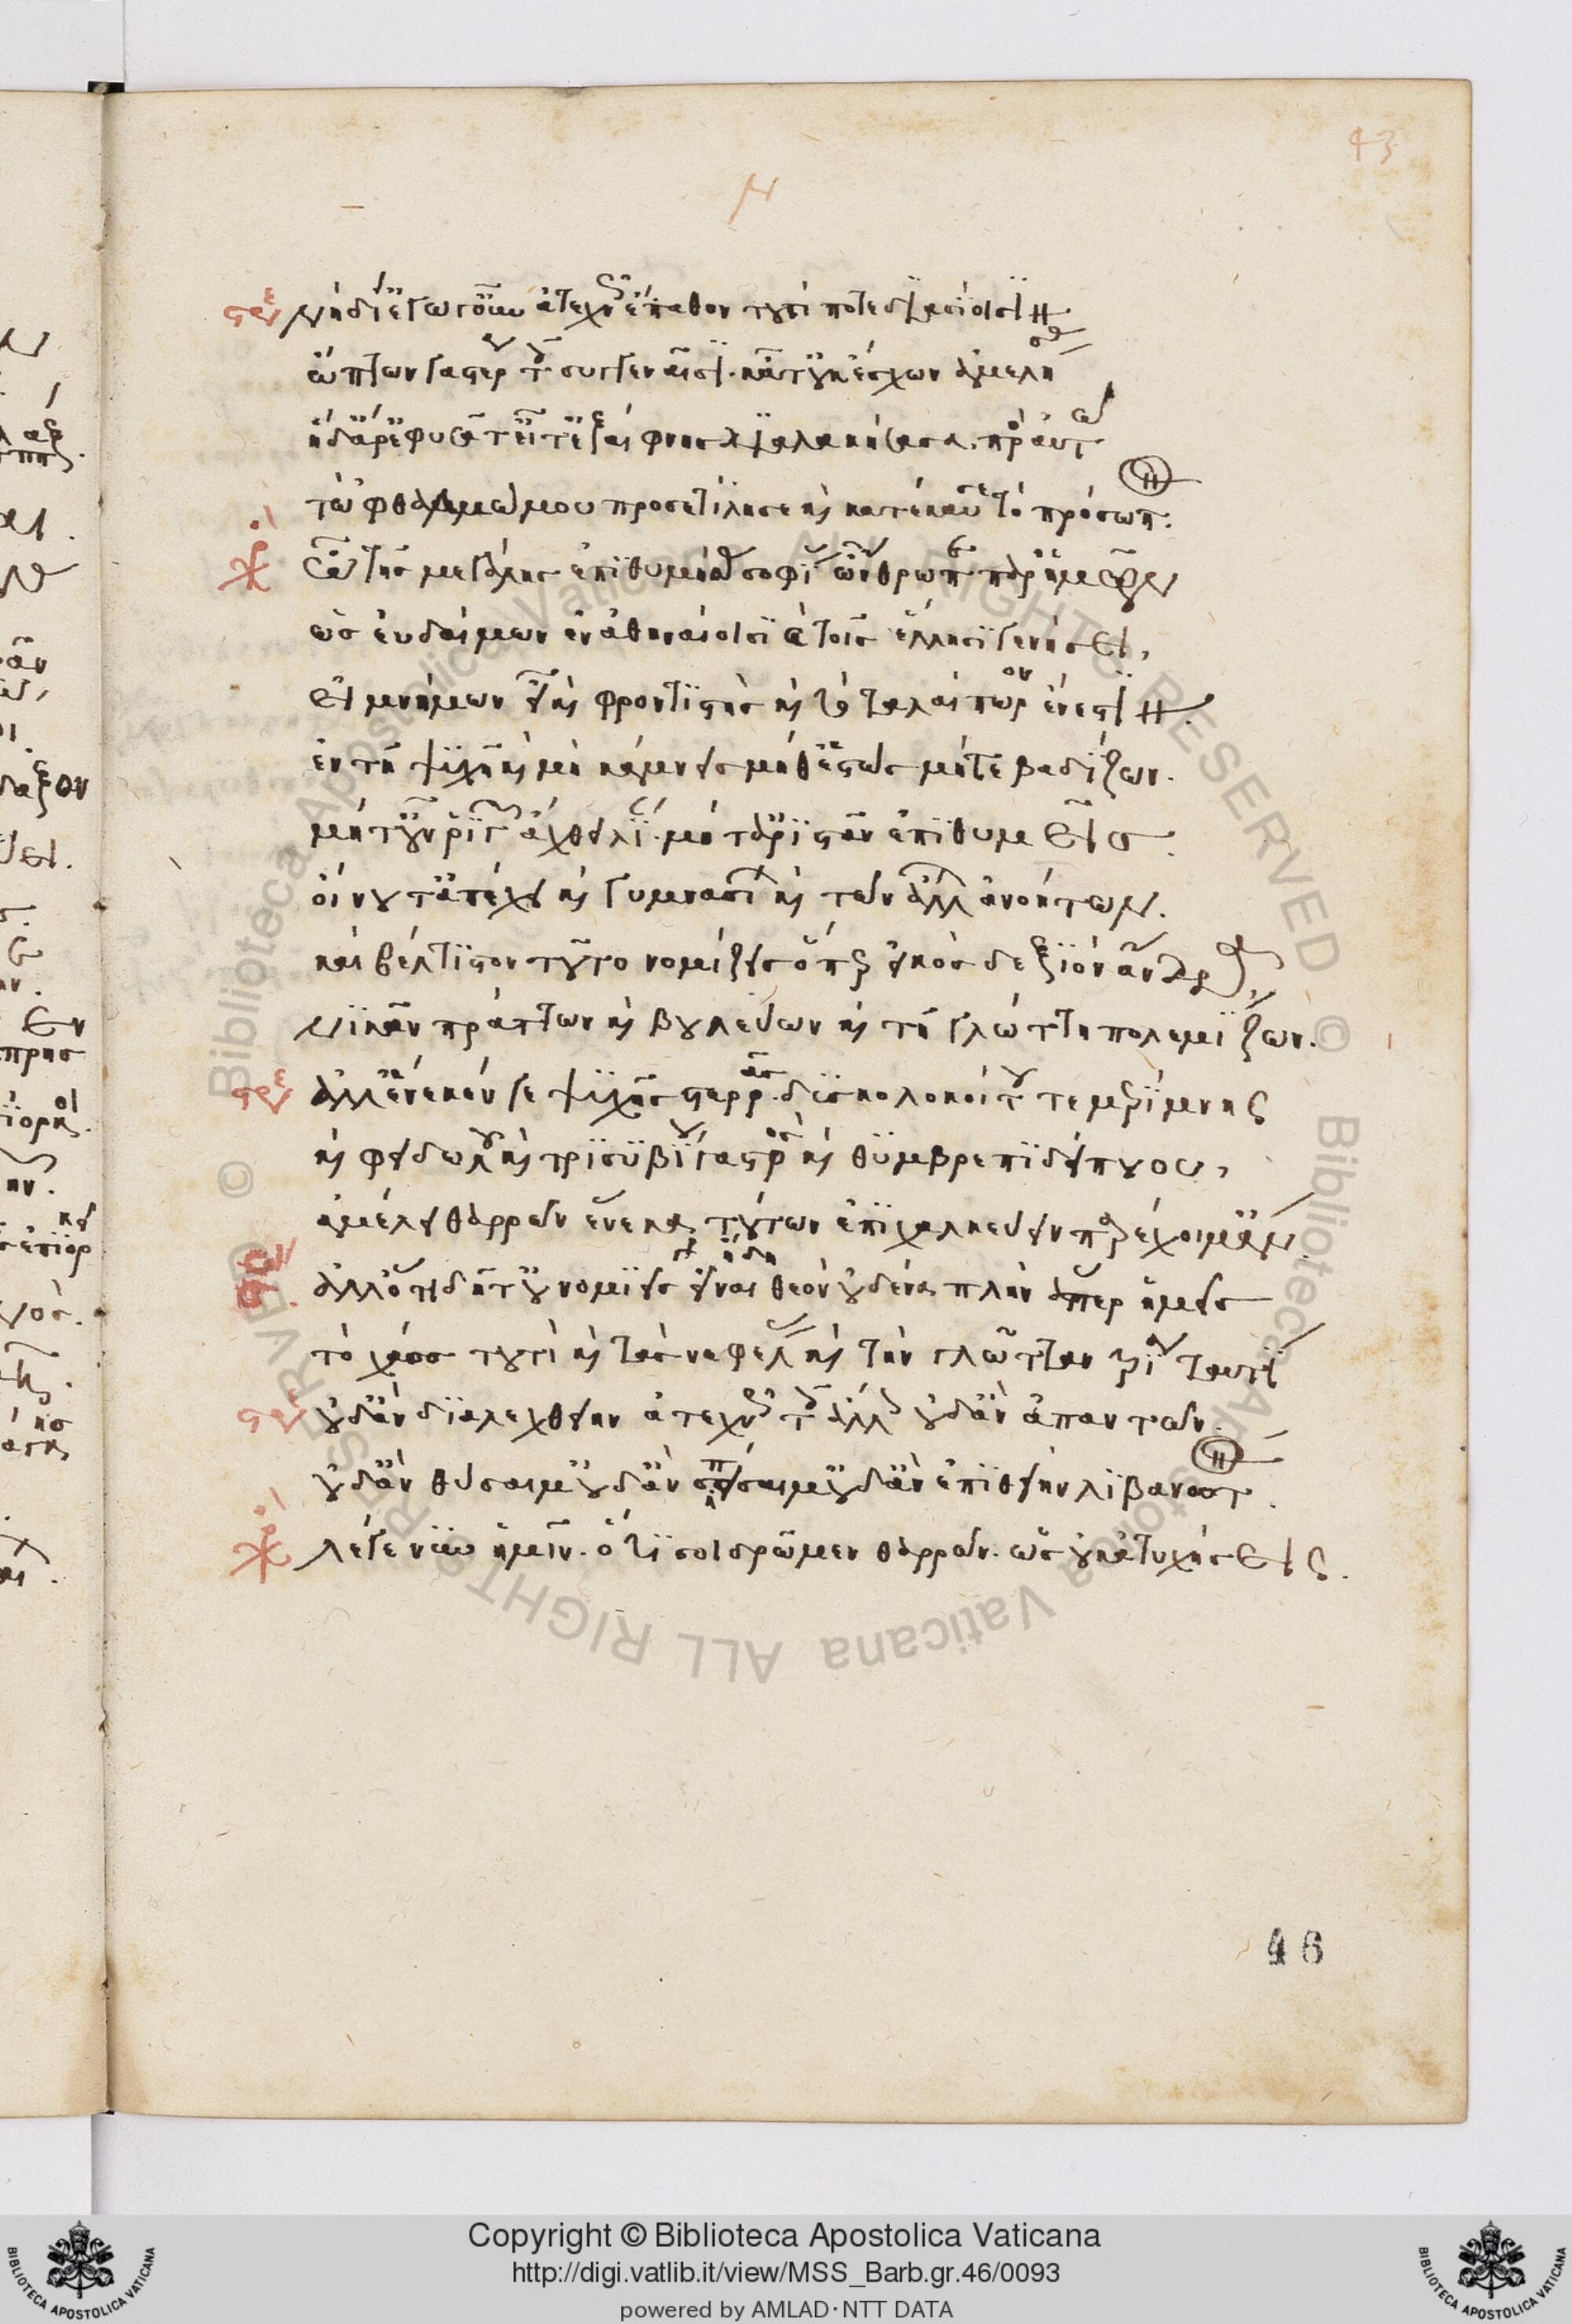 43
στρε νὴ δί' ἔγωγ' οὖν ἀτεχνῶς ἔπαθον τουτί ποτε διασίοισιν
ὀπτῶν γαστέρα τοῖς συγγενέσι. κᾆτ' οὐκ ἔσχων ἀμελήσας
ἡ δ' ἄρ' ἐφυσᾶτ' εἶτ' ἐξαίφνης διαλακήσασα. πρὸς αὐτὼ
τὠφθαλμώ μου προσετίλησε καὶ κατέκαυσε τὸ πρόσωπον.
χο ὦ τῆς μεγάλης ἐπιθυμήσας σοφίας ὤνθρωπε παρ' ἡμῶν
ὡς εὐδαίμων ἐν ἀθηναίοισι καὶ τοῖς ἕλλησι γενήσει,
εἰ μνήμων εἶ καὶ φροντιστὴς καὶ τὸ ταλαίπωρον ἔνεστιν.
ἐν τῇ ψυχῇ καὶ μὴ κάμνεις μήθ' ἑστὼς μήτε βαδίζων.
μήτ' οὖν ῥιγῶν ἄχθει λίαν. μήτ' ἀριστᾶν ἐπιθυμεῖς.
οἴνου τ' ἀπέχει καὶ γυμνασίων καὶ τῶν ἄλλων ἀνοήτων.
καὶ βέλτιστον τοῦτο νομίζεις ὅπερ εἰκὸς δεξιὸν ἄνδρα,
νικᾶν πράττων καὶ βουλεύων καὶ τῇ γλώττῃ πολεμίζων.
στρε ἀλλ' ἕνεκέν γε ψυχῆς στερρᾶς. δυσκολοκοίτου τε μερίμνης
καὶ φειδωλοῦ καὶ τρυσιβίου γαστρὸς καὶ θυμβρεπιδείπνου,
ἀμέλει θαρρῶν εἵνεκα τούτων ἐπιχαλκεύειν παρέχοιμ' ἄν.
σω. ἄλλο τι δῆτ' οὐ νομιεῖς ἤδη εἶναι θεὸν οὐδένα πλὴν ἅπερ ἡμεῖς
τὸ χάος τουτὶ καὶ τὰς νεφέλας καὶ τὴν γλῶτταν τρία ταυτί
στρε οὐδ' ἂν διαλεχθείην ἀτεχνῶς τοῖς ἄλλοις οὐδ' ἂν ἀπαντῶν.
οὐδ' ἂν θύσαιμ' οὐδ' ἂν σπείσαιμ' οὐδ' ἂν ἐπιθείην λιβανωτόν.
χο λέγε νῦν ἡμῖν. ὅτι σοι δρῶμεν θαρρῶν. ὡς οὐκ ἀτυχήσεις.
46
Copyright © Biblioteca Apostolica Vaticana
http://digi.vatlib.it/view/MSS_Barb.gr.46/0093
powered by AMLAD·NTT DATA